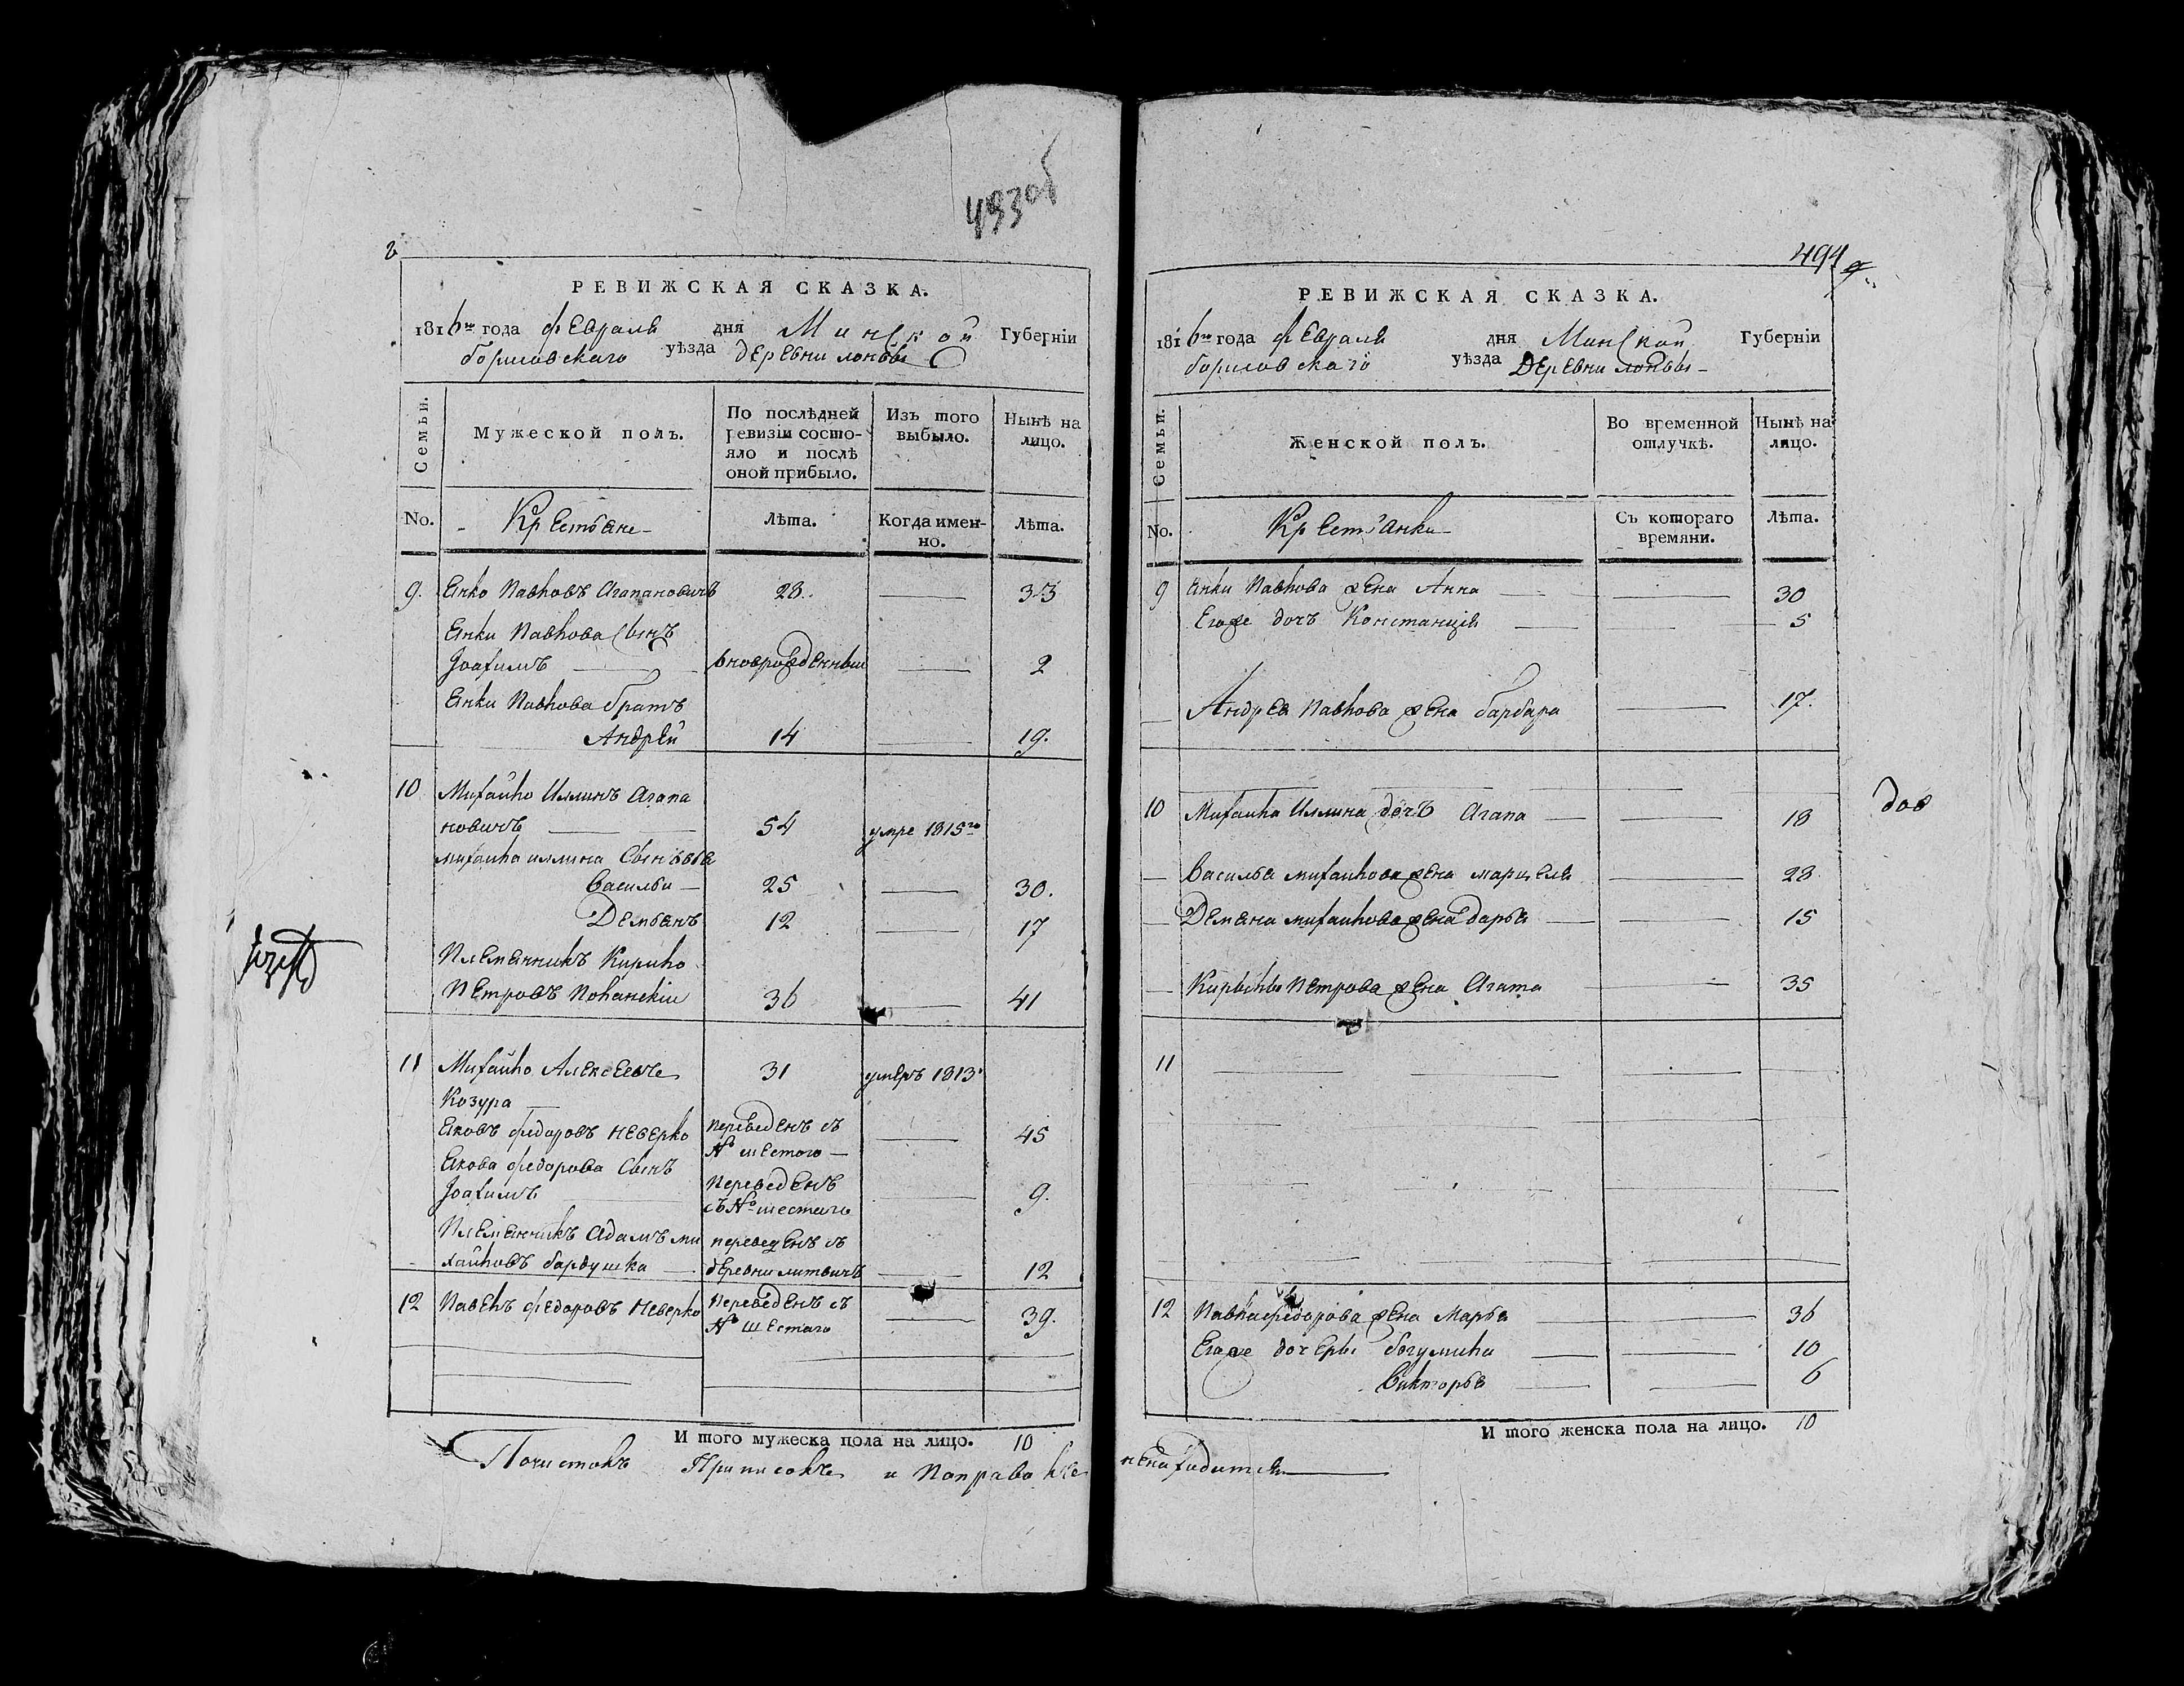 493об
РЕВИЖСКАЯ СКАЗКА.
1816го года февраля дня Минской Губерніи
борисовскаго уѣзда деревни
Семьи.
Мужеской полъ.
По послѣдней ревизіи состо-
яло и послѣ
оной прибыло.
Изъ того
выбыло.
Нынѣ на
лицо.
No.
Крестьяне
Лѣта.
Когда имен-
но.
Лѣта.
9. Янко Павловъ Агапановичъ 28. 33
Янки Павлова сынъ
Іоахимъ новорожденный 2
Янки Павлова братъ
Андрей 14 19.
10 Михайло Иллинъ Агапа
новичъ 54 умре 1815го
Михайла иллина сыновья
Василий 25 30.
Демьянъ 12 17
Племянникъ Кирило
Петровъ 36 41
11 Михайло Алексеевъ 31 умеръ 1813
Козура
Яковъ федоровъ неверко переведенъ съ
№ шестого 45
Якова федорова сынъ
Іоахимъ переведенъ
съ № шестаго 9.
Племянникъ Адамъ ми
хайловъ бардушка переведенъ съ
деревни литвичъ 12
12 Павелъ федоровъ неверко переведенъ съ
№ шестаго 39.
И того мужеска пола на лицо. 10
Почистокъ Приписокъ и поправокъ
494
9
РЕВИЖСКАЯ СКАЗКА.
1816го года февраля дня Минской Губерніи
борисовскаго уѣзда деревни
Семьи.
Женской полъ.
Во временной
отлучкѣ.
Нынѣ на
лицо.
No.
Крестьянки
Съ котораго
времяни.
Лѣта.
9 Янки Павлова жена Анна 30
Егоже дочъ Констанція 5
Андрея Павлова жена барбара 17.
10 Михайла Иллина дочъ Агапа 18
Василья михайлова жена марцеля 28
Демяна михайлова жена дарья 15
Кирылы Петрова жена Агата 35
11
12 Павла федорова жена Марья 36
Егоже дочеры богумила 10
Викторья 6
И того женска пола на лицо. 10
ненаходится